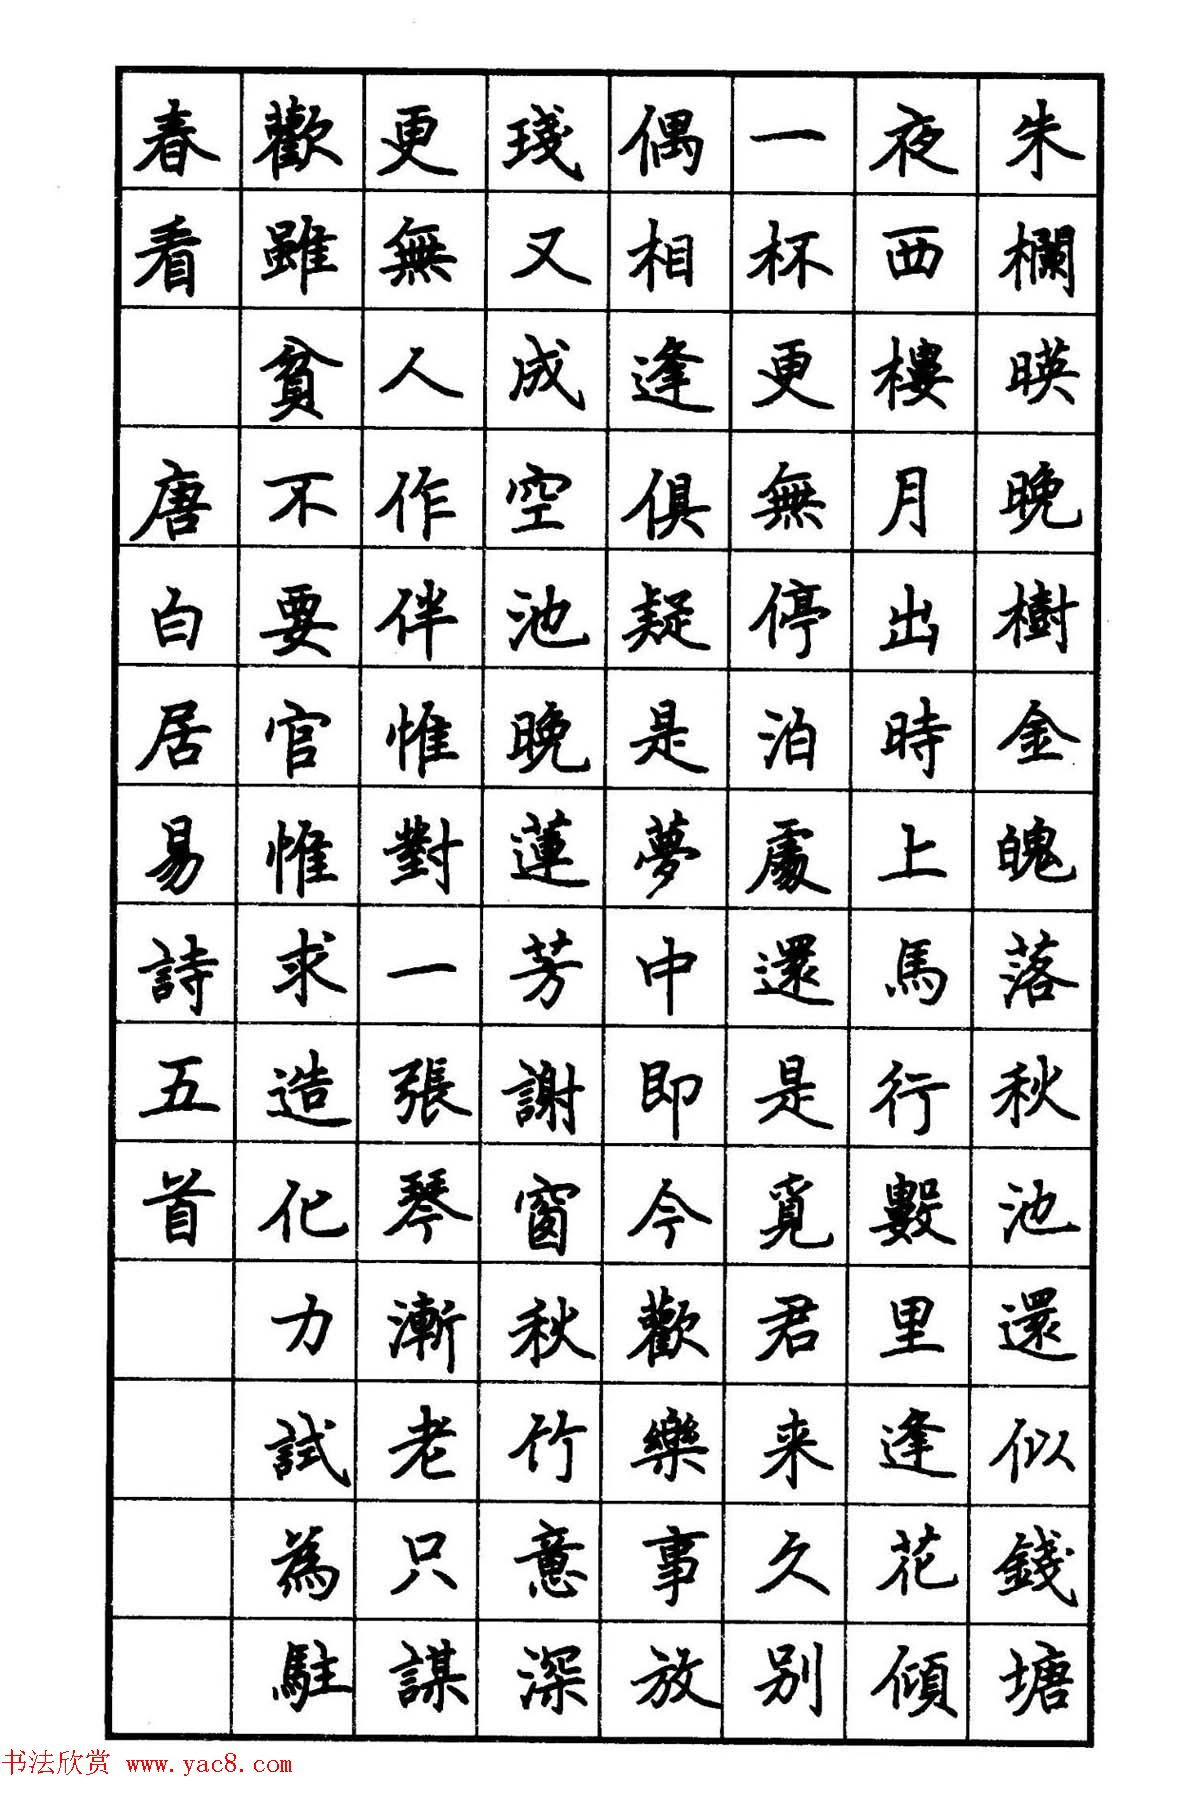 朱欄映晚樹金魄落秋池還似錢塘
夜西樓月出時上馬行數里逢花傾
一杯更無停泊處還是覓君来久别
偶相逢俱疑是夢中即今歡樂事放
琖又成空池晚蓮芳謝窗秋竹意深
更無人作伴惟對一張琴漸老只謀
歡雖貧不要官惟求造化力試為駐
春看 唐白居易詩五首
书法欣赏 www.yac8.com